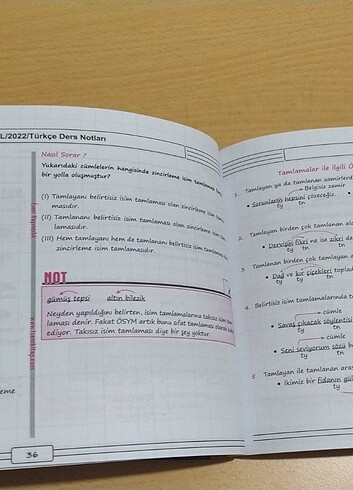 L/2022/Türkçe Ders Notları
Nasıl Sorar ?
Yukarıdaki cümlelerin hangisinde zincirleme isim tamlaması
bir yolla oluşmuştur?
(I) Tamlayanı belirtisiz isim tamlaması olan zincirleme isim
masıdır.
(II) Tamlananı belirtisiz isim tamlaması olan zincirleme
lamasıdır.
(III) Hem tamlayanı hem de tamlananı belirtisiz isim tamlaması
zincirleme isim tamlamasıdır.
NOT
gümüş tepsi altın bilezik
Neyden yapıldığını belirten, isim tamlamalarına takısız isim tam
laması denir. Fakat ÖSYM artık bunu sıfat tamlaması olarak
ediyor. Takısız isim tamlaması diye bir şey yoktur.
36
Tamlamalar ile ilgili
1. Tamlayan ya da tamlanan zamirlerd
Belgisiz zamir
• Sorunların hepsini çözeceğiz.
ty tn
2. Tamlayan birden çok tamlanan
• Derginin fikri ne ise zikri
ty tn tn
3. Tamlanan birden çok tamlayan
• Dağ ve kır çiçekleri topla
ty ty tn
4. Belirtisiz isim tamlamalarında
cümle
• Savaş çıkacak söylentisi
ty tn
cümle
• Seni seviyorum sözü
ty tn
5. Tamlayan ile tamlanan aras
• İkimiz bir fidanın
ty